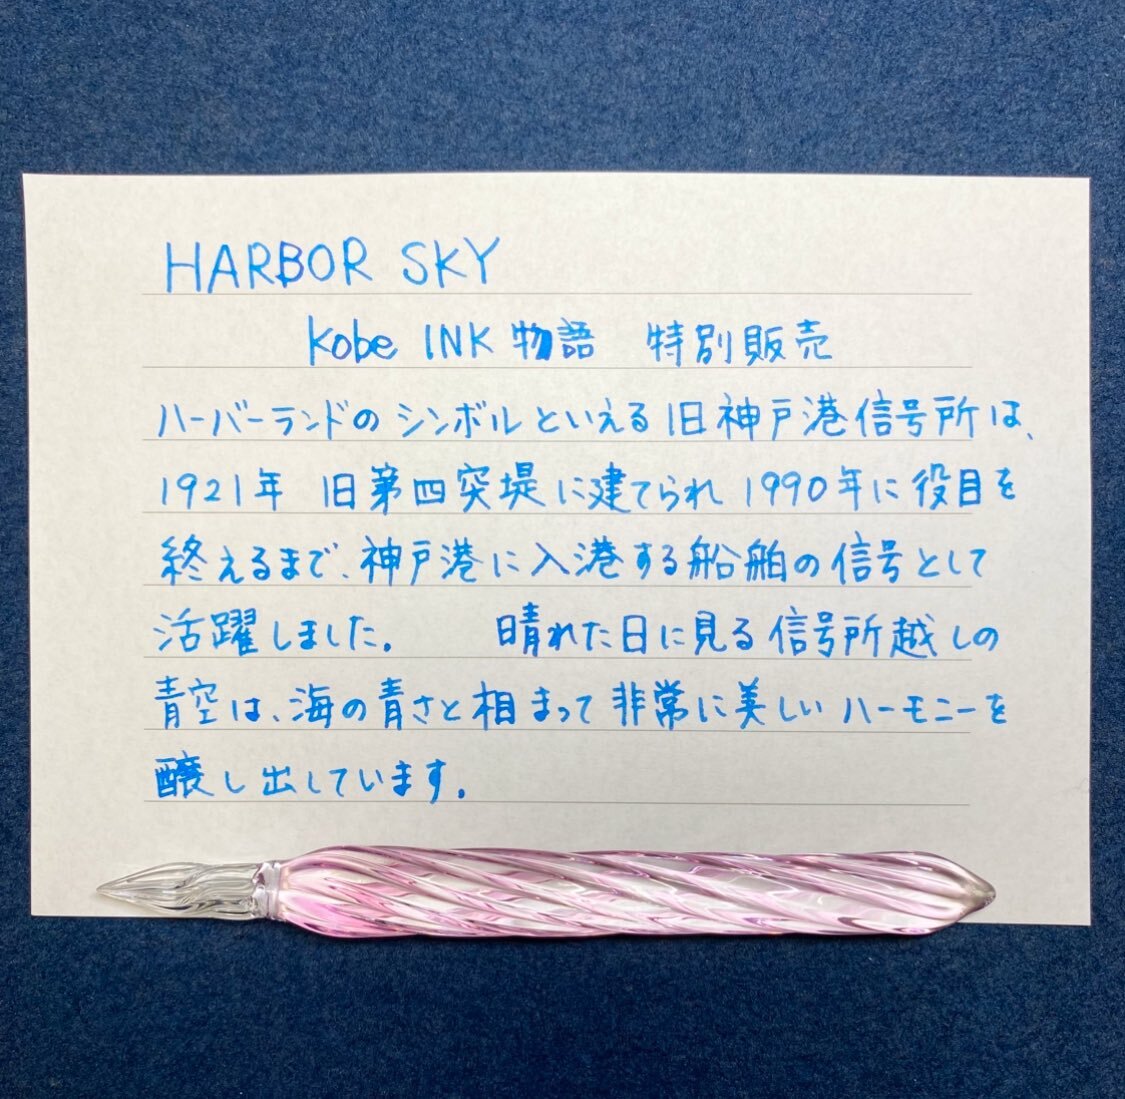 HARBOR SKY
Kobe INK 物語　特別販売
ハーバーランドのシンボルといえる旧神戸港信号所は、
1921年　旧第四突堤に建てられ1990年に役目を
終えるまで、神戸港に入港する船舶の信号として
活躍しました。　　晴れた日に見る信号所越しの
青空は、海の青さと相まって非常に美しいハーモニーを
醸し出しています。